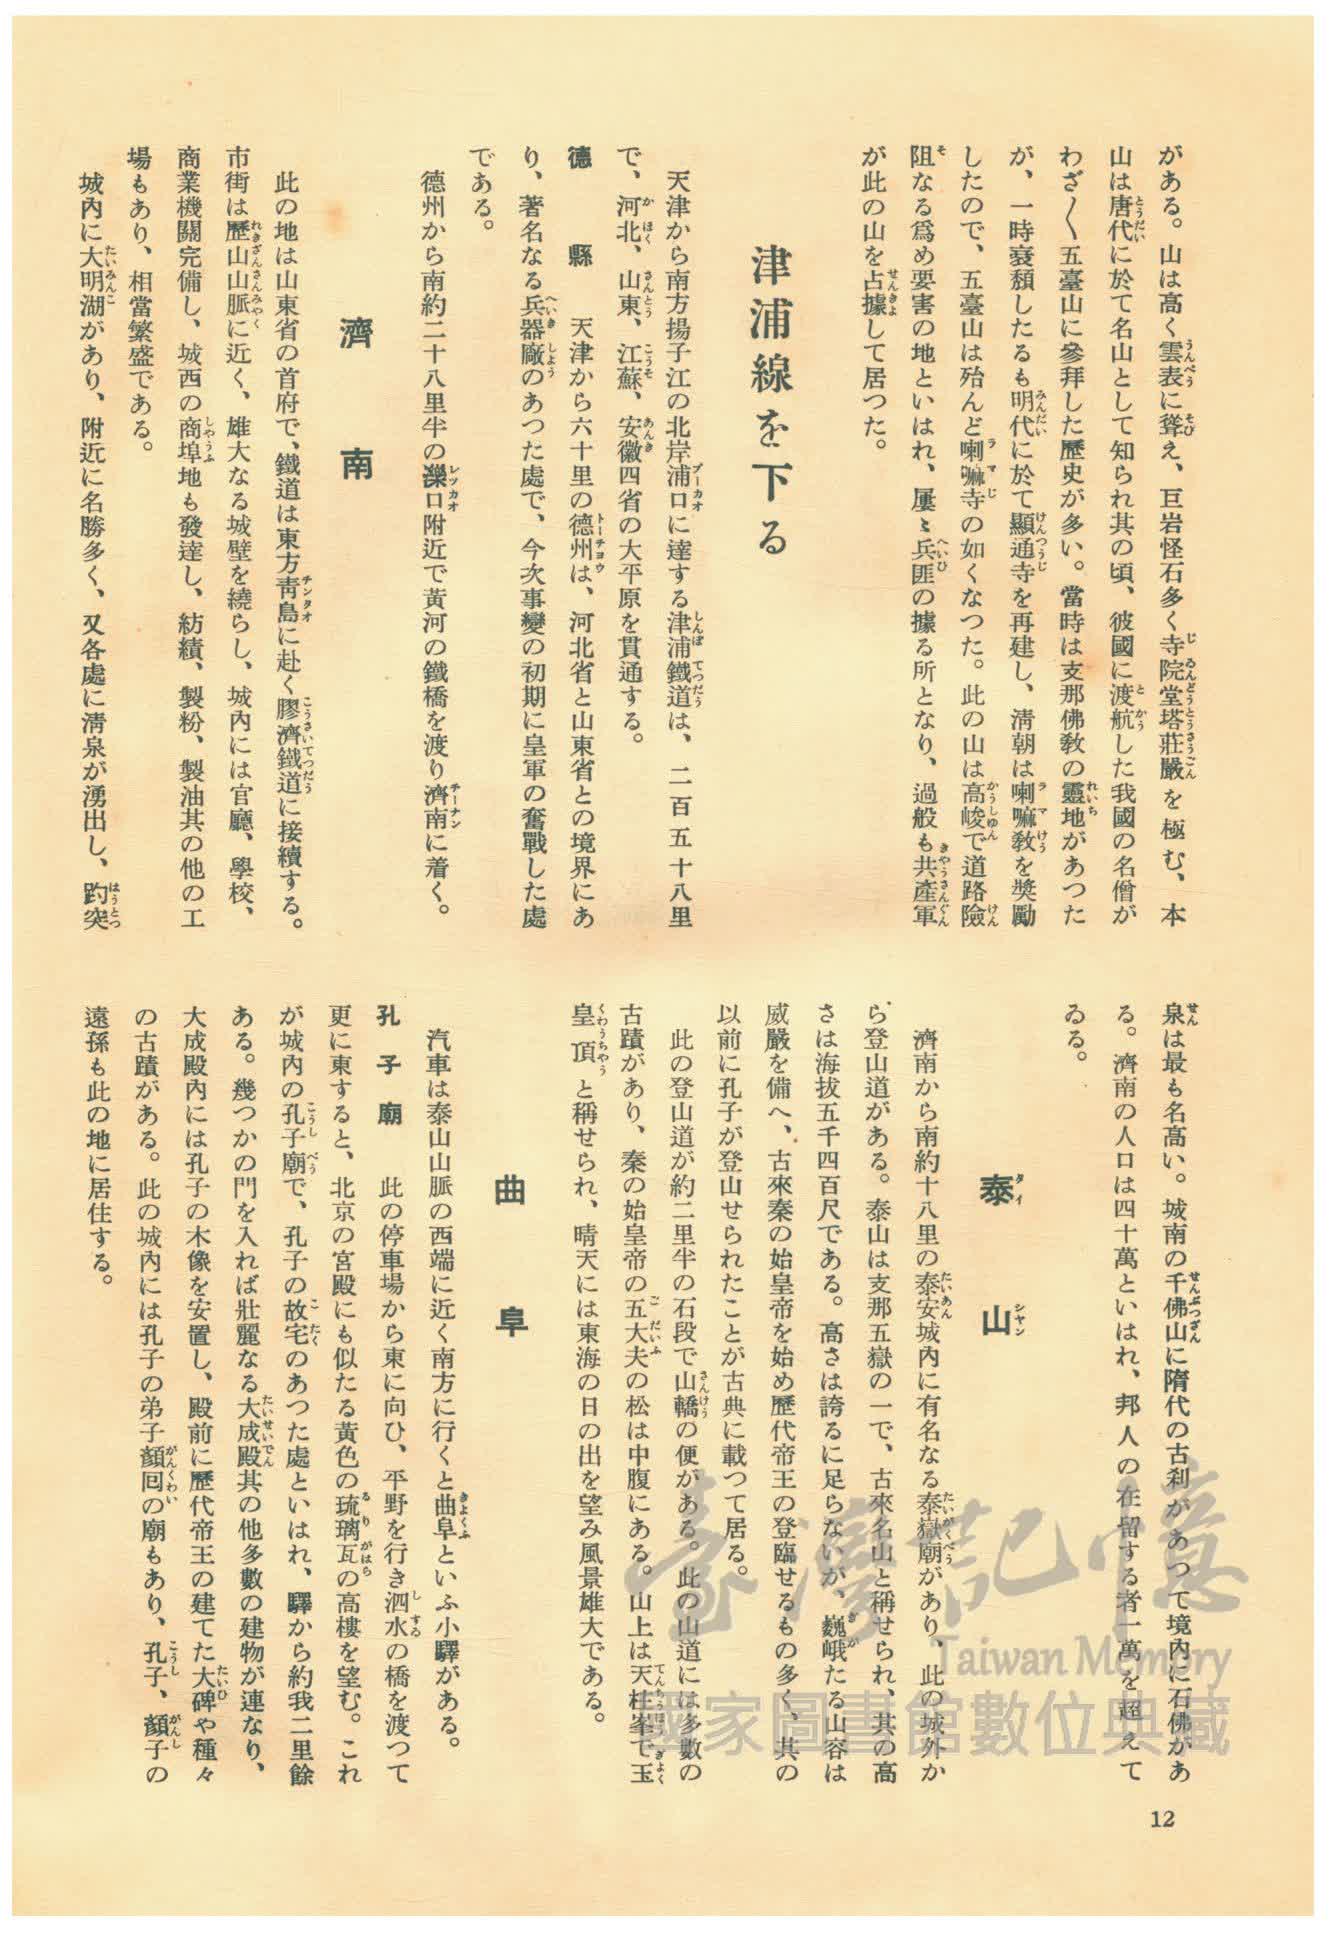 がある。山は高く雲表に聳え、巨岩怪石多く寺院堂塔莊嚴を極む、本
山は唐代に於て名山として知られ其の頃、彼國に渡航した我國の名僧が
わざ〱五臺山に參拜した歷史が多い。當時は支那佛教の靈地があつた
が、一時衰頽したるも明代に於て顯通寺を再建し、清朝は喇嘛教を奬勵
したので、五臺山は殆んど喇嘛寺の如くなつた。此の山は高峻で道路險
阻なる爲め要害の地といはれ、屢〻兵匪の據る所となり、過般も共產軍
が此の山を占據して居つた。
津浦線を下る
天津から南方揚子江の北岸浦口に達する津浦鐵道は、二百五十八里
で、河北、山東、江蘇、安徽四省の大平原を貫通する。
德縣 天津から六十里の德州は、河北省と山東省との境界にあ
り、著名なる兵器廠のあつた處で、今次事變の初期に皇軍の奮戰した處
である。
德州から南約二十八里半の濼口附近で黃河の鐵橋を渡り濟南に着く。
濟南
此の地は山東省の首府で、鐵道は東方靑島に赴く膠濟鐵道に接續する。
市街は歷山山脈に近く、雄大なる城壁を繞らし、城內には官廳、學校、
商業機關完備し、城西の商埠地も發達し、紡績、製粉、製油其の他の工
場もあり、相當繁盛である。
城內に大明湖があり、附近に名勝多く、又各處に淸泉が湧出し、趵突
泉は最も名高い。城南の千佛山に隋代の古刹があつて境內に石佛があ
る。濟南の人口は四十萬といはれ、邦人の在留する者一萬を超えて
ゐる。
泰山
濟南から南約十八里の泰安城內に有名なる泰嶽廟があり、此の城外か
ら登山道がある。泰山は支那五嶽の一で、古來名山と稱せられ、其の高
さは海拔五千四百尺である。高さは誇るに足らないが、巍峨たる山容は
威嚴を備へ、古來秦の始皇帝を始め歷代帝王の登臨せるもの多く、其の
以前に孔子が登山せられたことが古典に載つて居る。
此の登山道が約二里半の石段で山轎の便がある。此の山道には多數の
古蹟があり、秦の始皇帝の五大夫の松は中腹にある。山上は天柱峯で玉
皇頂と稱せられ、晴天には東海の日の出を望み風景雄大である。
曲阜
汽車は泰山山脈の西端に近く南方に行くと曲阜といふ小驛がある。
孔子廟 此の停車場から東に向ひ、平野を行き泗水の橋を渡つて
更に東すると、北京の宮殿にも似たる黃色の琉璃瓦の高樓を望む。これ
が城內の孔子廟で、孔子の故宅のあつた處といはれ、驛から約我二里餘
ある。幾つかの門を入れば壯麗なる大成殿其の他多數の建物が連なり、
大成殿內には孔子の木像を安置し、殿前に歷代帝王の建てた大碑や種々
の古蹟がある。此の城內には孔子の弟子顏回の廟もあり、孔子、顏子の
遠孫も此の地に居住する。
12
臺灣記憶
Taiwan Memory
國家圖書館數位典藏